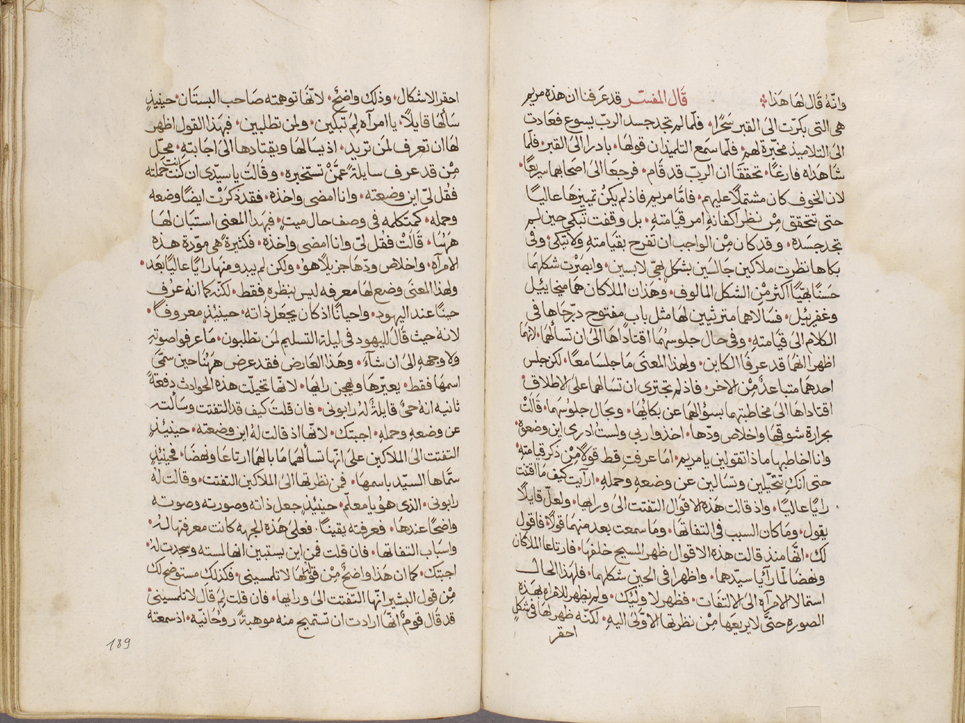 وانه قال لها هذا قال المفسر قد عرفنا ان هذه مريم
هي التي بكرت الى القبر سحرا فلما لم تجد جسد الرب يسوع فعادت
الى التلاميذ مخبرة لهم فلما سمع التلميذان قولها بادرا الى القبر فلما
شاهداه فارغا تحققا ان الرب قد قام فرجعا الى اصحابهما سريعا
لان الخوف كان مشتملا عليهم فاما مريم فاذ لم يكن تمييزها عاليا
حتى تتحقق من نظر اكفانه امر قيامته بل وقفت تبكي حين لم
تجد جسده وقد كان من الواجب ان تفرح بقيامته ولا تبكي وفي
بكاها نظرت ملاكين جالسين بشكل بهي لابسين وابصرت شكلهما
حسنا بهيا اكثر من الشكل المالوف وهذان الملاكان هما ميخاييل
وغفرييل فسالاها مترتيين لها مثل باب مفتوح درجاها في
الكلام الى قيامته وفي حال جلوسهما اقتاداها الى ان تسالها لانهما
اظهرا انهما قد عرفا الكاين ولهذا المعنى ما جلسا معا لكن جلس
احدهما متباعدا من الاخر فاذ لم تجتري ان تسالهما على الاطلاق
اقتاداها الى مخاطبتهما بسوالهما عن بكايها وبحال جلوسهما قالت
بحرارة شوقها واخلاص ودها اخذوا ربي ولست ادري اين وضعوه
وانا اخاطبها ماذا تقولين يا مريم اما عرفت قط قولا من ذكر قيامته
حتى انك تتخيلين وتسالين عن وضعه وحمله ارايت كيف ما اقتنت
رايا عاليا واذ قالت هذه الاقوال التفتت الى وراها ولعل قايلا
يقول وما كان السبب في التفاتها وما سمعت بعد منهما قولا فاقول
لك انها منذ قالت هذه الاقوال ظهر المسيح خلفها فارتاعا الملاكان
ونهضا لما رايا سيدهما واظهرا في الحين شكلهما فلهذا الحال
استمالا الامراه الى الالتفات فظهر لاوليك ولم يظهر للامراه بهذه
الصوره حتى لا يريعها من نظرها الاولى اليه لكنه ظهر لها في شكل
احقر
احقر الاشكال وذلك واضح لانها توهمته صاحب البستان حينيذ
سالها قايلا يا امراه لم تبكين ولمن تطلبين فهذا القول اظهر
لها ان تعرف لمن تريد اذ يسالها ويقتادها الى اجابته
من قد عرف سايلة عمن تستخبره وقالت يا سيدي ان كنت حملته
فقل لي اين وضعته وانا امضي واخذه فقد ذكرت ايضا وضعه
وحمله كمتكلمه في وصف حال ميت فهذا المعنى استبان لها
هزسا قالت فقل لي وانا امضي واخذه فكثيرة هي مودة هذه
الامراه واخلاص ودها جزيلا هو ولكن لم يبدو منها رايا عاليا بعد
ولهذا المعنى وضع لها معرفه ليس بنظره فقط لكنه كما انه عرف
حينا عند اليهود واحيانا اذ كان يجعل ذاته حينيذ معروفا
لانه حيث قال لليهود في ليلة التسليم لمن تطلبون ما عرفوا صوته
ولا وجهه الى ان شاء وهذا العارض فقد عرض هنا حين سمى
اسمها فقط يعيرها ويهجن رايها لانها تخيلت هذه الحوادث دفعة
ثانيه انه حي قايلة له رابوني فان قلت كيف قد التفتت وسالته
عن وضعه وحمله اجبتك لانها اذ قالت له اين وضعته حينيذ
التفتت الى الملاكين على انها تسالهما ما بالهما ارتاعا ونهضا فحينيذ
سماها السيد باسمها فمن نظرها الى الملاكين التفتت وقالت له
رابوني الذي هو يا معلم حينيذ جعل ذاته وصورته وصوته
واضحا عندها فعرفته يقينا فعلى هذه الجهه كانت معرفتها له
واسباب التفاتها فان قلت فمن اين يستبين انها لمسته وسجدت له
اجبتك كما ان هذا واضح من قوله لها لا تلمسيني فكذلك مستوضح لك
من قول البشير انها التفتت الى ورايها فان قلت لم قال لا تلمسيني
قد قال قوم انها ارادت ان تستميح منه موهبة روحانيه اذ سمعته
189